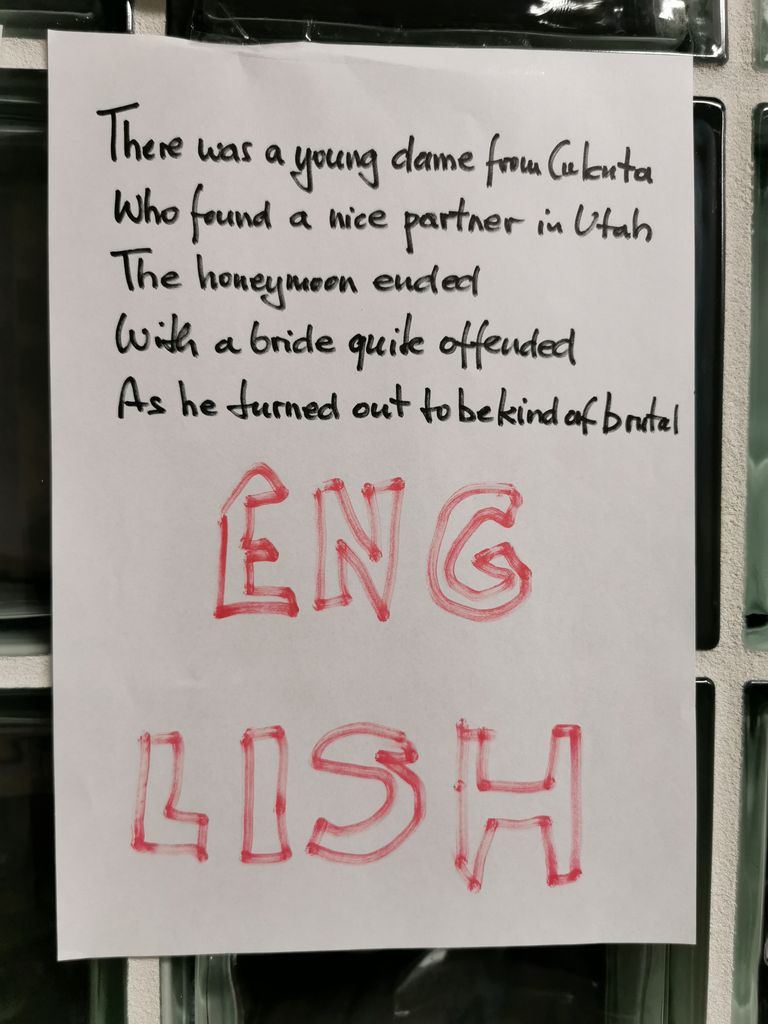 There was a young dame from Calcuta
Who found a nice partner in Utah
The honeymoon ended
With a bride quite offended
As he turned out to be kind of brutal
ENG
LISH